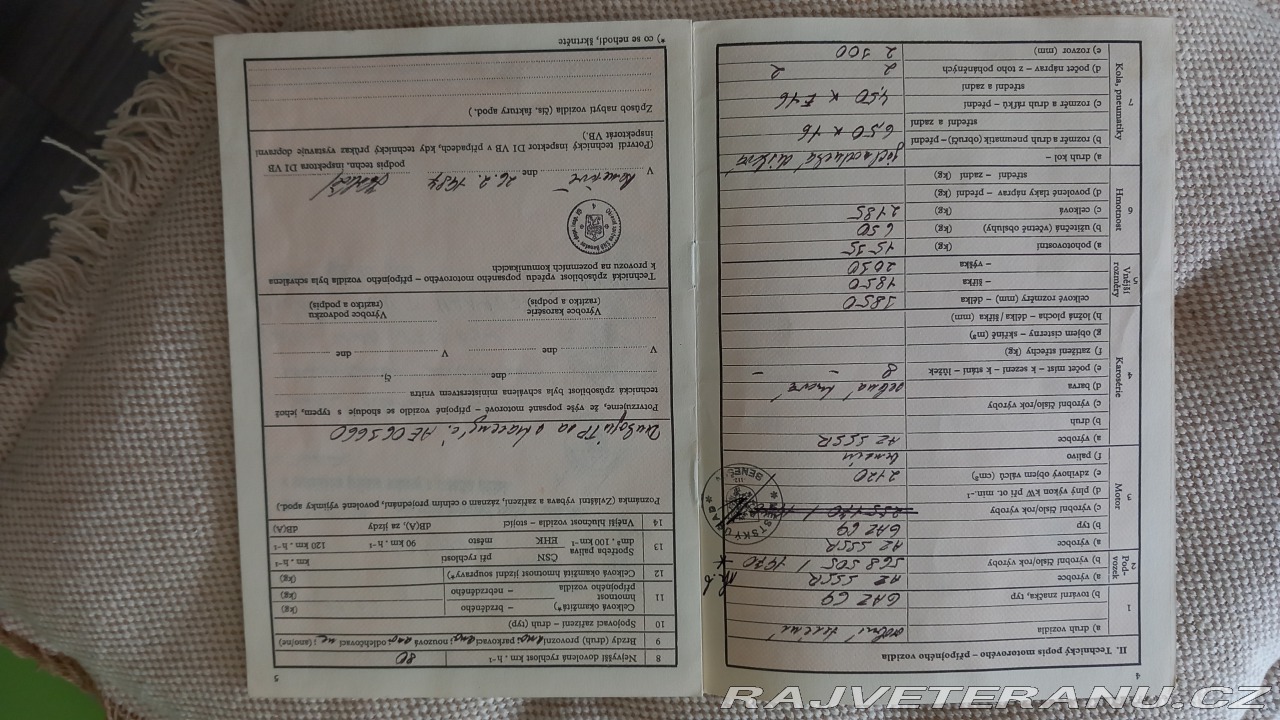 4
II. Technický popis motorového – přípojného vozidla
1
a) druh vozidla
b) tovární značka, typ GAZ 69
2 Pod-vozek
a) výrobce AZ SSSR
b) výrobní číslo/rok výroby 568505 / 1970
3 Motor
a) výrobce AZ SSSR
b) typ GAZ 69
c) výrobní číslo/rok výroby
d) plný výkon kW při ot. min.⁻¹
e) zdvihový objem válců (cm³) 2120
f) palivo benzin
4 Karosérie
a) výrobce AZ SSSR
b) druh
c) výrobní číslo/rok výroby
d) barva
e) počet míst – k sezení – k stání – lůžek 8 – –
f) zatížení střechy (kg)
g) objem cisterny – skříně (m³)
h) ložná plocha – délka/šířka (mm)
5 Vnější rozměry
celkové rozměry (mm) – délka 3850
– šířka 1850
– výška 2030
6 Hmotnost
a) pohotovostní (kg) 1535
b) užitečná (včetně obsluhy) (kg) 650
c) celková (kg) 2185
d) povolené tlaky náprav – přední (kg)
střední – zadní (kg)
7 Kola, pneumatiky
a) druh kol –
b) rozměr a druh pneumatik (obručí) – přední 6,50 x 16
střední a zadní
c) rozměr a druh ráfků – přední 4,50 x E16
střední a zadní
d) počet náprav – z toho poháněných 2 2
e) rozvor (mm) 2 300
5
8 Nejvyšší dovolená rychlost km . h⁻¹ 80
9 Brzdy (druh) provozní ano; parkovací ano; nouzová ano; odlehčovací ne; (ano/ne)
10 Spojovací zařízení – druh (typ)
11 Celková okamžitá*) hmotnost přípojného vozidla – brzděného (kg)
– nebrzděného (kg)
12 Celková okamžitá hmotnost jízdní soupravy*) (kg)
13 Spotřeba paliva dm³ . 100 km⁻¹ ČSN při rychlosti km . h⁻¹
EHK město 90 km . h⁻¹ 120 km . h⁻¹
14 Vnější hlučnost vozidla – stojící dB(A), za jízdy dB(A)
Poznámka (Zvláštní výbava a zařízení, záznam o celním projednání, povolené výjimky apod.)
TP za AE 065660
Potvrzujeme, že výše popsané motorové – přípojné vozidlo se shoduje s typem, jehož
technická způsobilost byla schválena ministerstvem vnitra
dne čj.
V dne V dne
Výrobce karosérie Výrobce podvozku
(razítko a podpis) (razítko a podpis)
Technická způsobilost vpředu popsaného motorového – přípojného vozidla byla schválena
k provozu na pozemních komunikacích
V dne 26. 2. 1987
podpis techn. inspektora DI VB
(Potvrdí technický inspektor DI VB v případech, kdy technický průkaz vystavuje dopravní
inspektorát VB.)
Způsob nabytí vozidla (čís. faktury apod.)
*) co se nehodí, škrtněte
RAJVETERANU.CZ